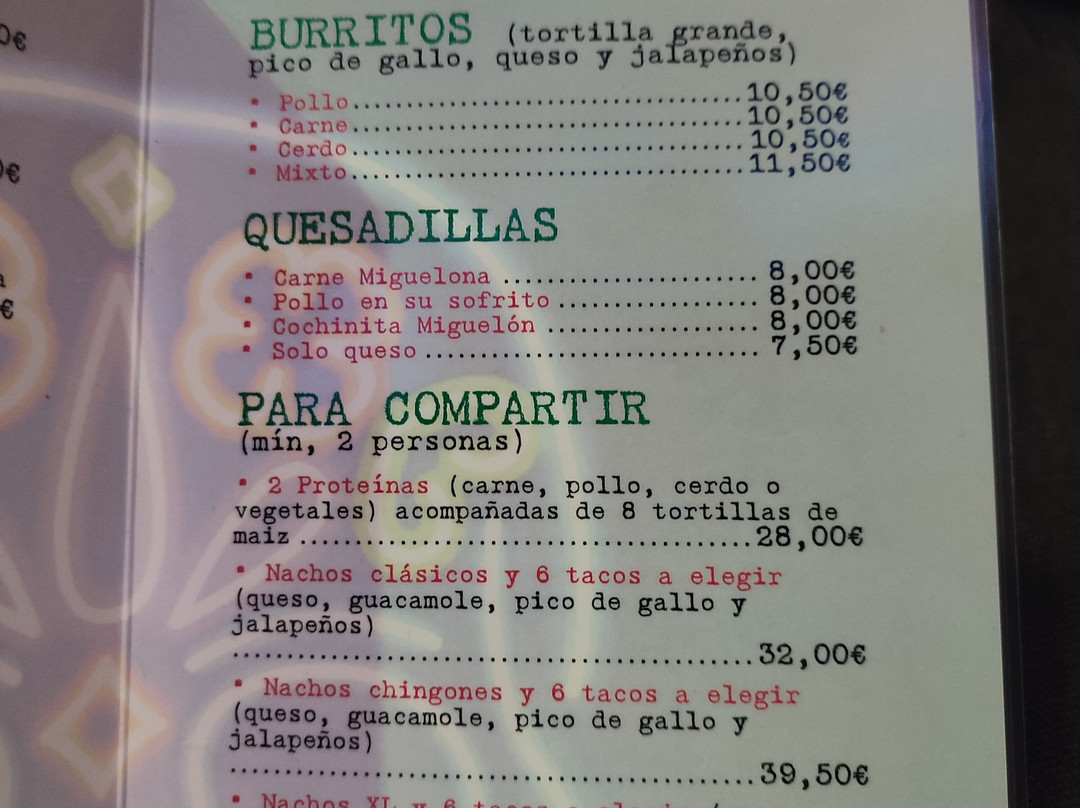 0€
BURRITOS (tortilla grande,
pico de gallo, queso y jalapeños)
• Pollo.....................................10,50€
• Carne.....................................10,50€
• Cerdo.....................................10,50€
• Mixto.....................................11,50€
0€
QUESADILLAS
• Carne Miguelona ........................ 8,00€
• Pollo en su sofrito ................... 8,00€
• Cochinita Miguelón .................... 8,00€
• Solo queso ............................... 7,50€
a
€
PARA COMPARTIR
(mín, 2 personas)
• 2 Proteínas (carne, pollo, cerdo o
vegetales) acompañadas de 8 tortillas de
maiz ..........................................28,00€
• Nachos clásicos y 6 tacos a elegir
(queso, guacamole, pico de gallo y
jalapeños)
.................................................32,00€
• Nachos chingones y 6 tacos a elegir
(queso, guacamole, pico de gallo y
jalapeños)
.................................................39,50€
• Nachos XL y 6 tacos a elegir (